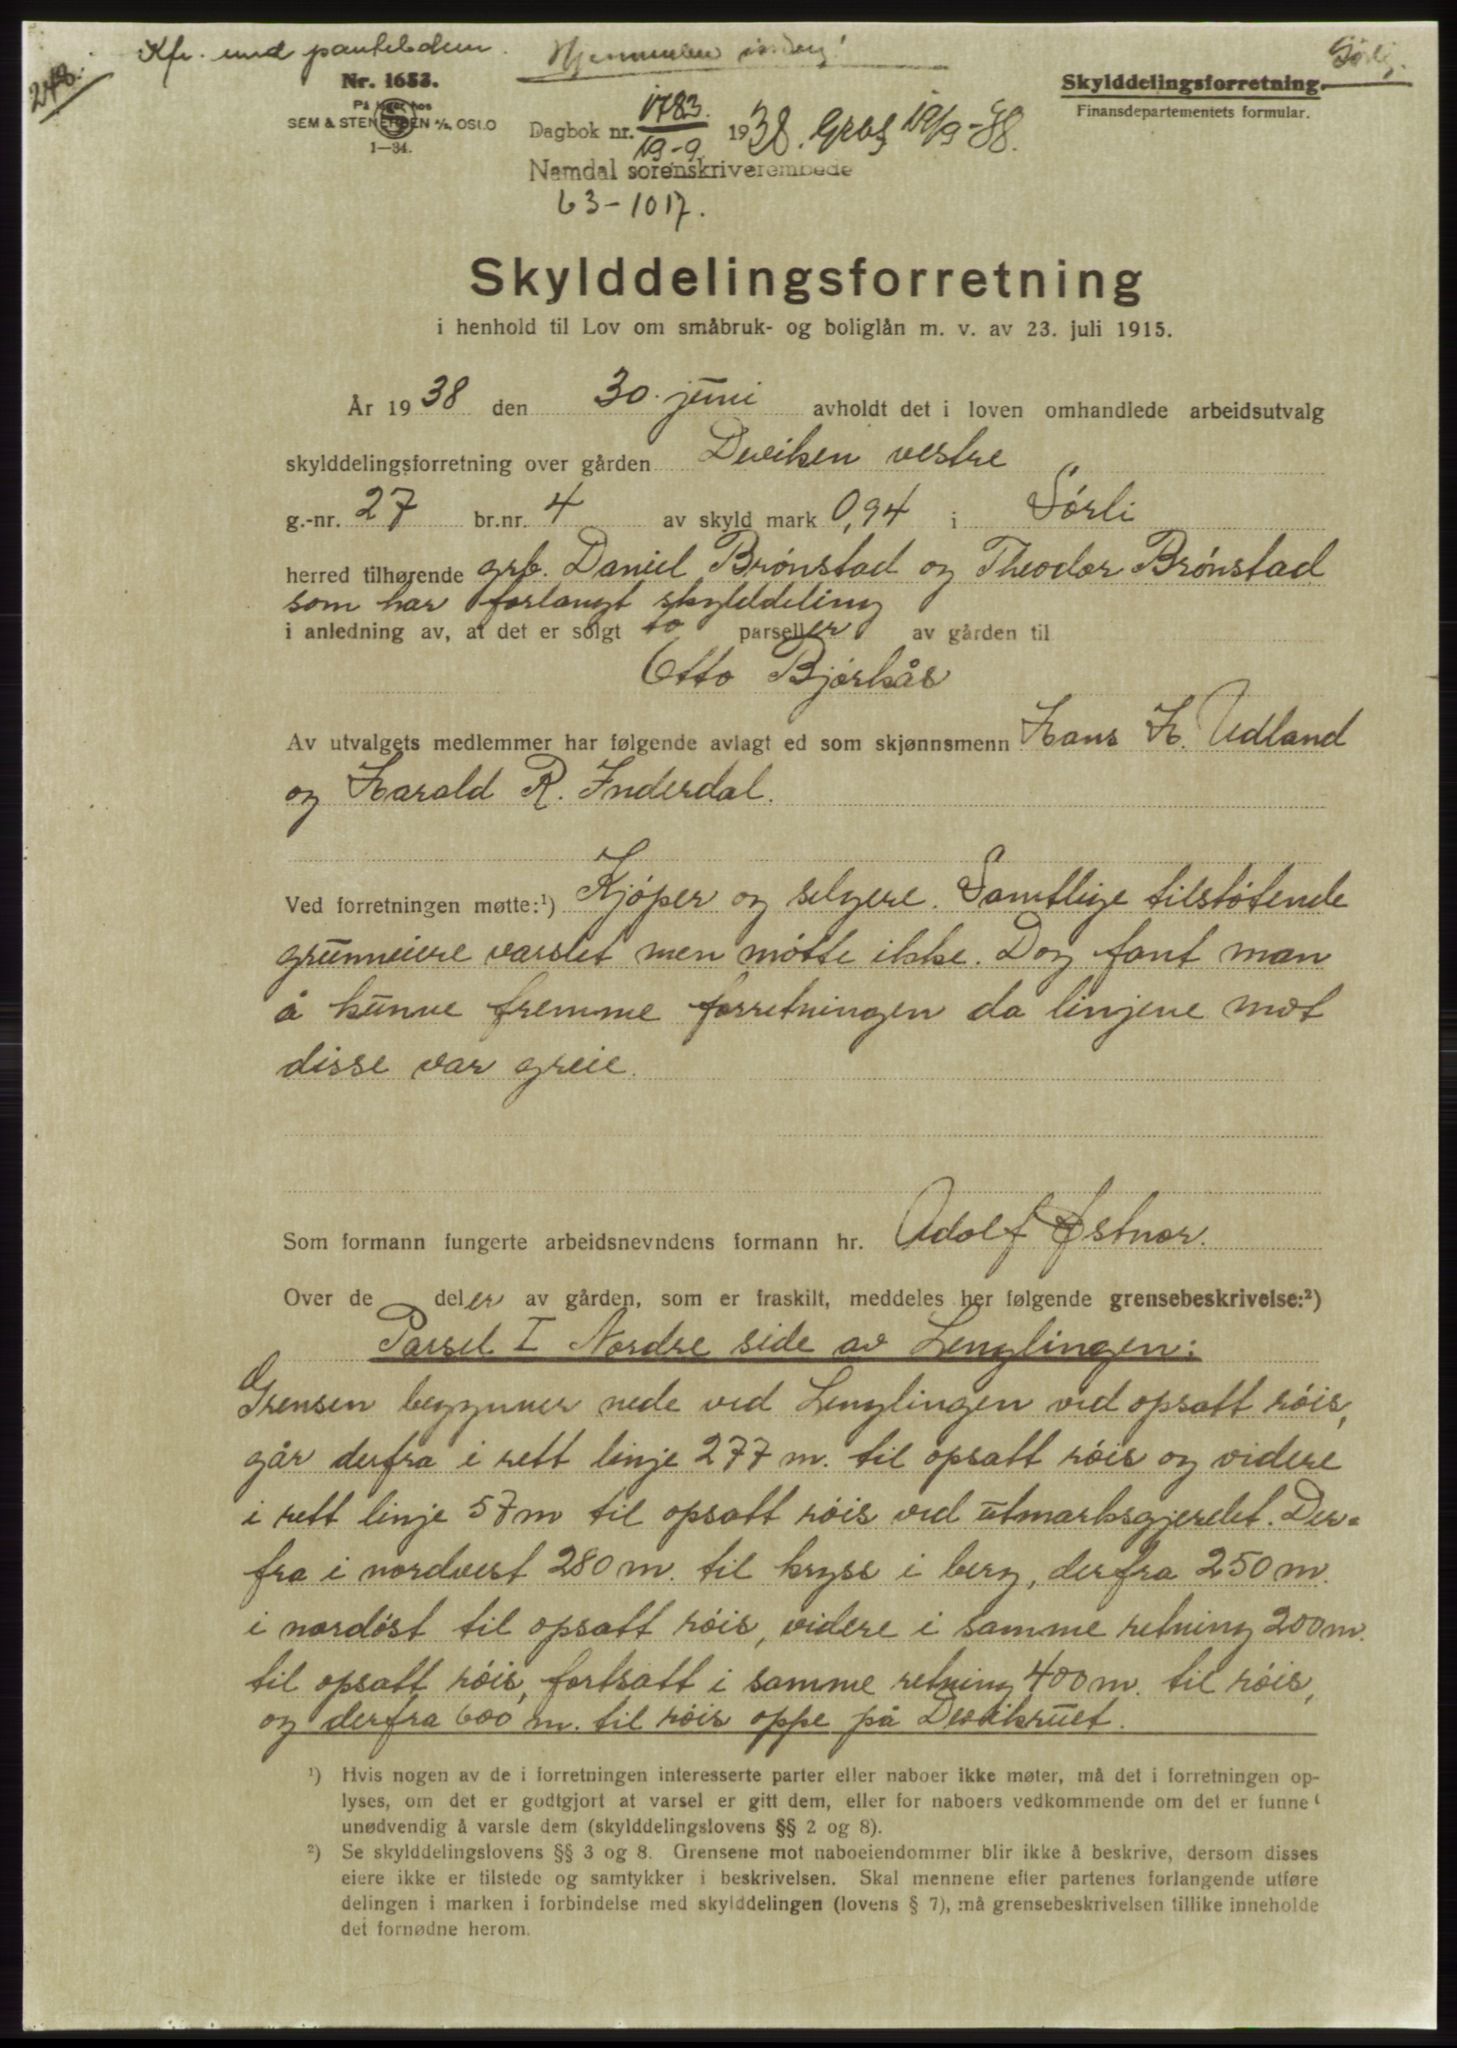 248.
Kfr. med pantebdem.
Nr. 1653.
På lager hos
SEM & STENERSEN A/S, OSLO
1—34.
Dagbok nr. 1783. 19-9. 1938. 19/9-38.
Namdal sorenskriverembede
63-1017.
Sørli.
Skylddelingsforretning
Finansdepartementets formular.
Skylddelingsforretning
i henhold til Lov om småbruk- og boliglån m. v. av 23. juli 1915.
År 1938 den 30. juni avholdt det i loven omhandlede arbeidsutvalg
skylddelingsforretning over gården Deviken vestre
g.-nr. 27 br.nr. 4 av skyld mark 0,94 i Sørli
herred tilhørende grb. Daniel Brønstad og Theodor Brønstad
som har forlangt skylddeling
i anledning av, at det er solgt to parseller av gården til
Otto Bjørkås
Av utvalgets medlemmer har følgende avlagt ed som skjønnsmenn Hans H. Udland
og Harald R. Inderdal.
Ved forretningen møtte:¹) Kjøper og selgere. Samtlige tilstøtende
grunneiere varslet men møtte ikke. Dog fant man
å kunne fremme forretningen da linjene mot
disse var greie.
Som formann fungerte arbeidsnevndens formann hr. Adolf Østnor.
Over de deler av gården, som er fraskilt, meddeles her følgende grensebeskrivelse:²)
Parsel I Nordre side av Lenglingen:
Grensen begynner nede ved Lenglingen ved opsatt røis,
går derfra i rett linje 277 m. til opsatt røis og videre
i rett linje 57 m til opsatt røis ved utmarksgjerdet. Der-
fra i nordvest 280 m. til kryss i berg, derfra 250 m.
i nordøst til opsatt røis, videre i samme retning 200 m.
til opsatt røis, fortsatt i samme retning 400 m. til røis,
og derfra 600 m. til røis oppe på Devikruet.
¹) Hvis nogen av de i forretningen interesserte parter eller naboer ikke møter, må det i forretningen op-
lyses, om det er godtgjort at varsel er gitt dem, eller for naboers vedkommende om det er funnet
unødvendig å varsle dem (skylddelingslovens §§ 2 og 8).
²) Se skylddelingslovens §§ 3 og 8. Grensene mot naboeiendommer blir ikke å beskrive, dersom disses
eiere ikke er tilstede og samtykker i beskrivelsen. Skal mennene efter partenes forlangende utføre
delingen i marken i forbindelse med skylddelingen (lovens § 7), må grensebeskrivelsen tillike inneholde
det fornødne herom.